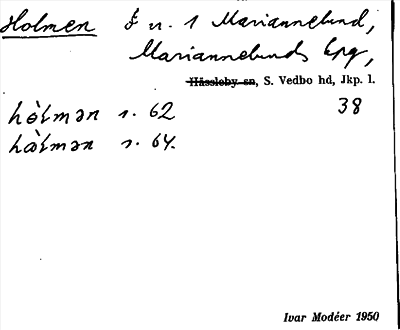 Holmen Í n. 1 Mariannelund,
Mariannelunds kpg,
Hässleby sn, S. Vedbo hd, Jkp. l.
hòlmən s. 62 38
hàlmən s. 64.
Ivar Modéer 1950